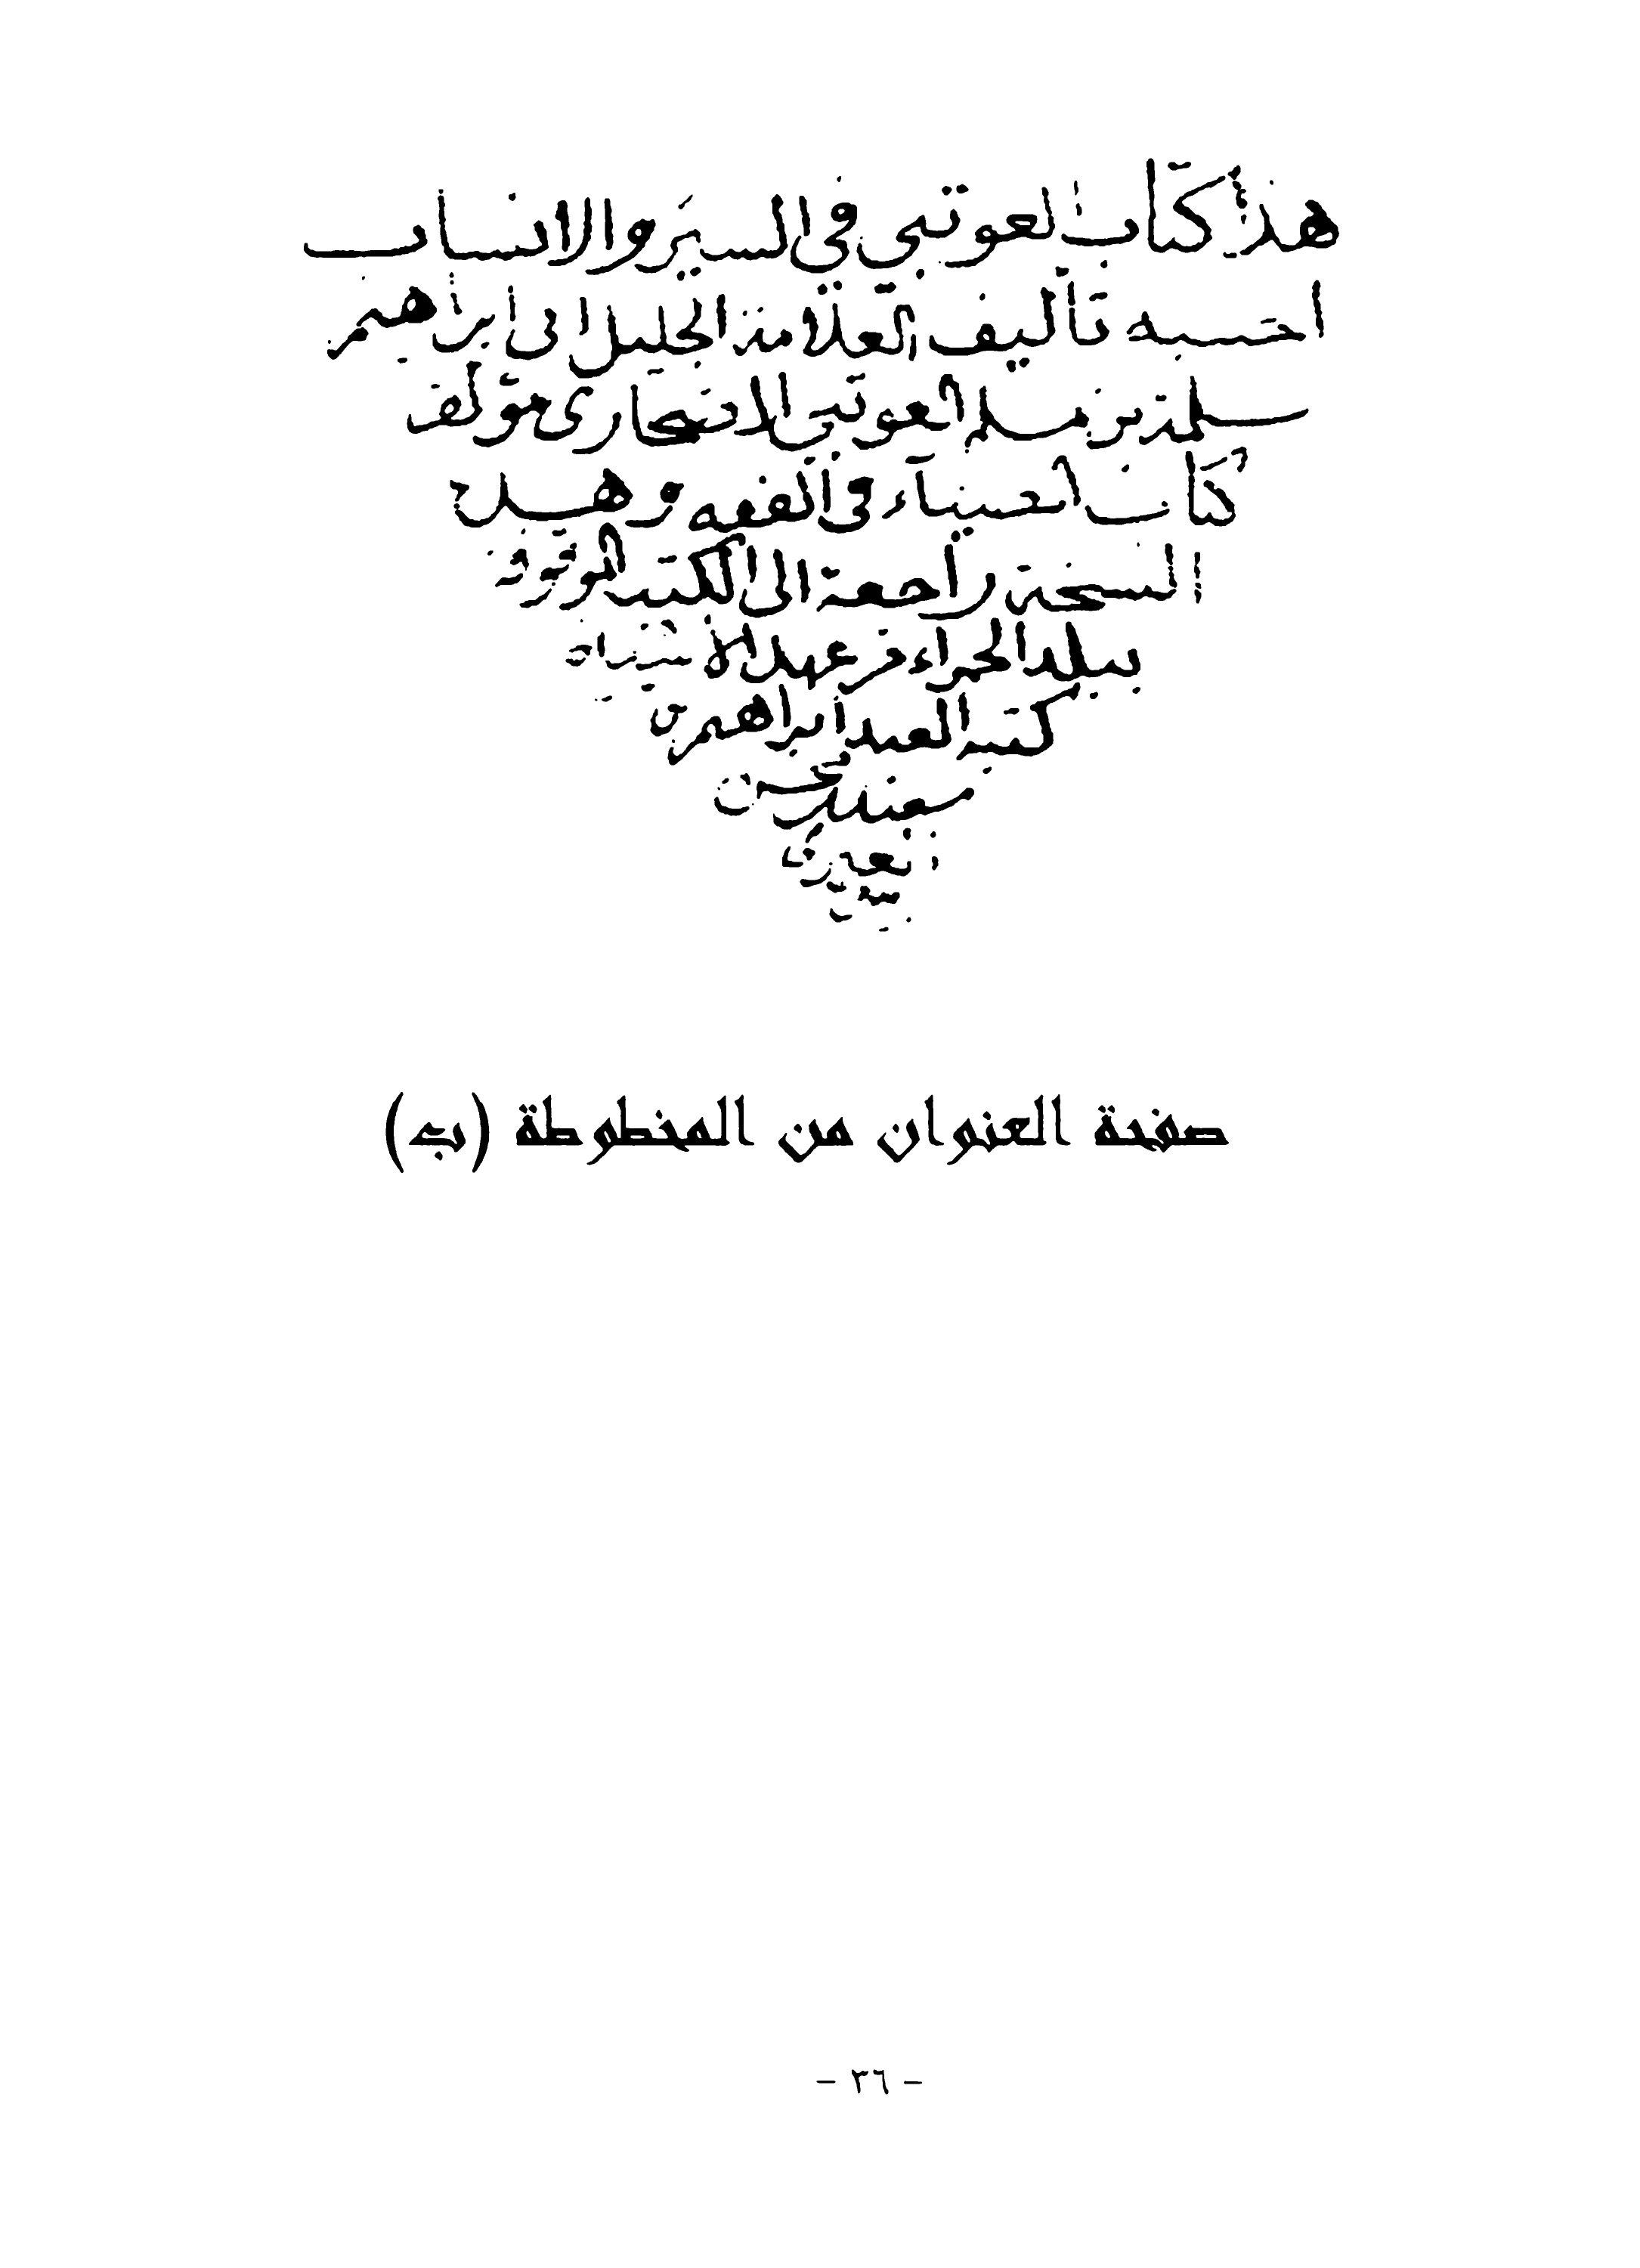 هذا كتاب العوتبي في السير والانساب
احسبه تأليف العلامة الجليل ابى ابراهيم
سلمة بن مسلم العوتبي الصحاري مؤلف
كتاب الضياء في الفقه وهذه
النسخة راجعة الى المكتبة الموقوفة
ببلد الحمراء من عهد الأ
كتبه العبد ابراهيم بن
سعيد بن محسن
العبري
صفحة العنوان من المخطوطة (ب)
- ٣٦ -